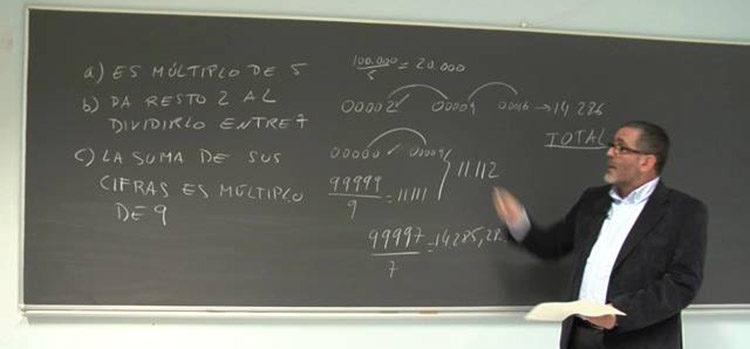 a) ES MÚLTIPLO DE 5
b) DA RESTO 2 AL
DIVIDIRLO ENTRE 7
c) LA SUMA DE SUS
CIFRAS ES MÚLTIPLO
DE 9
100.000/5 = 20.000
00002 00009 00016 → 14 286
TOTAL
00000 00009
99999/9 = 11111 } 11.112
99997/7 = 14285,28